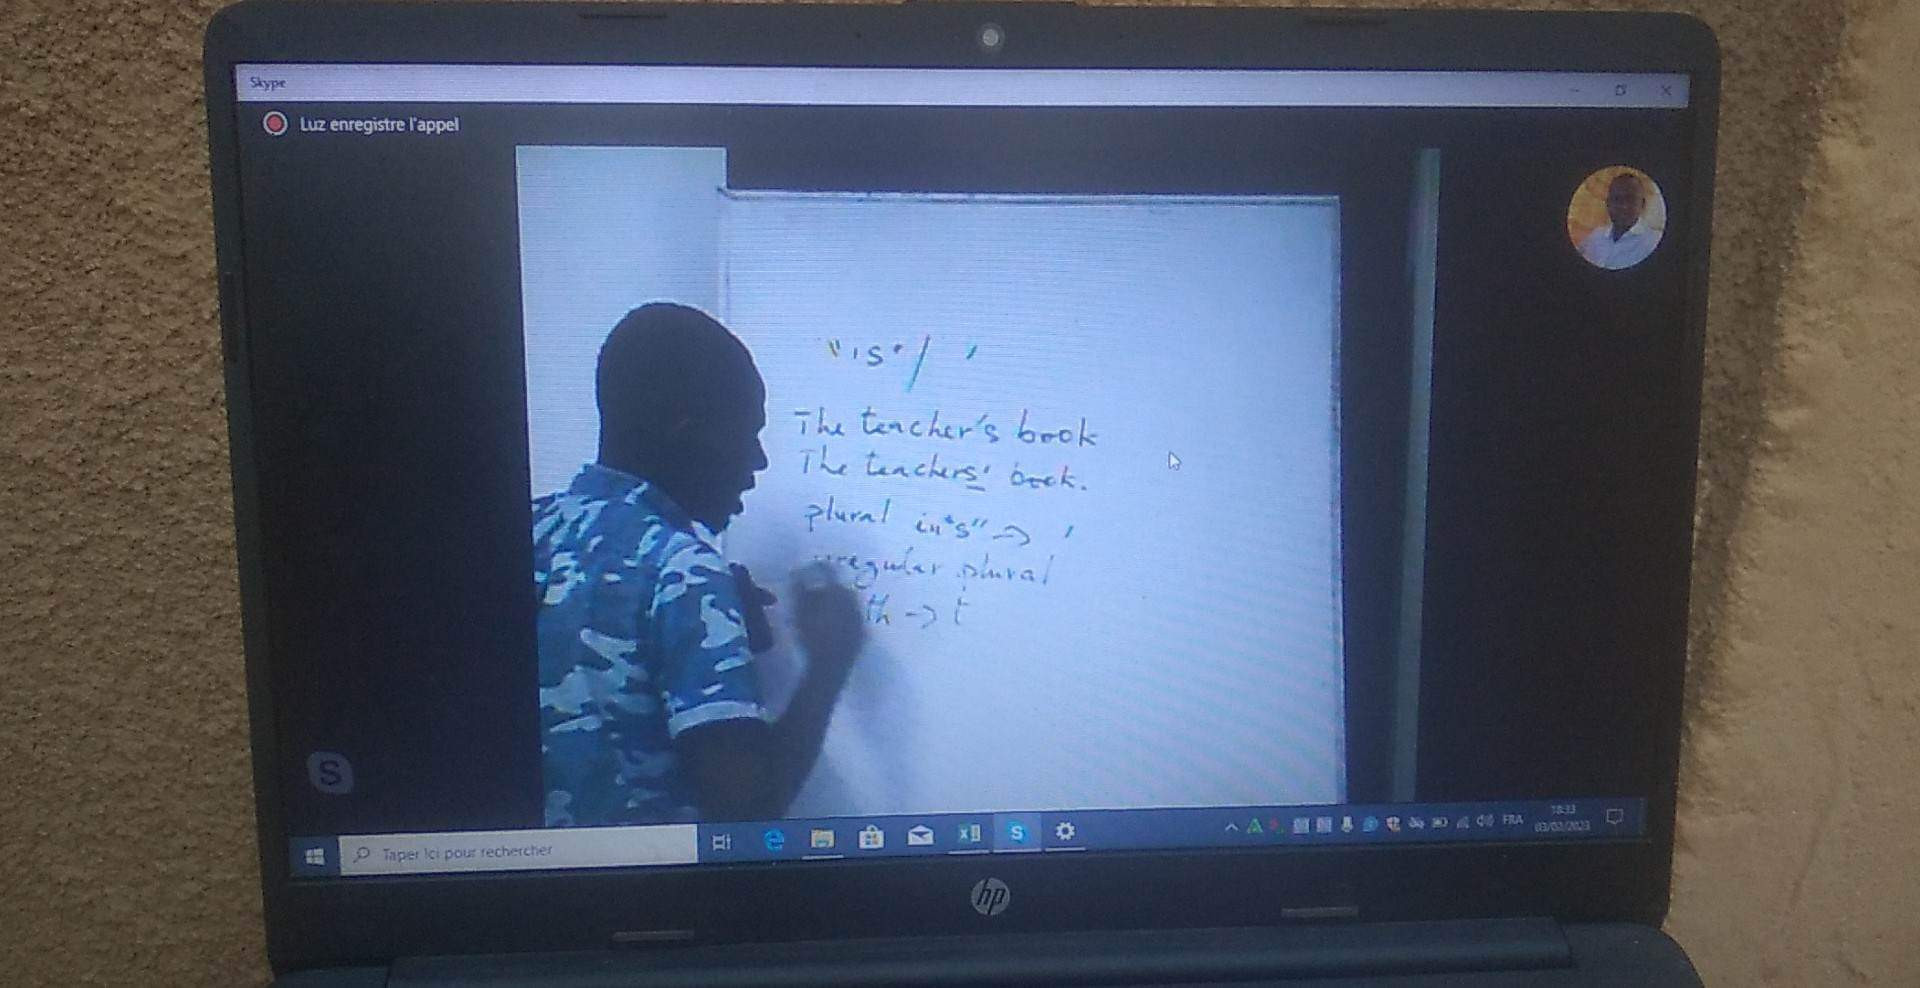 Skype
Luz enregistre l'appel
"'s" / '
The teacher's book
The teachers' book.
plural in "s" -> '
irregular plural
th -> t
S
Taper ici pour rechercher
S
FRA
18:33
03/02/2023
hp